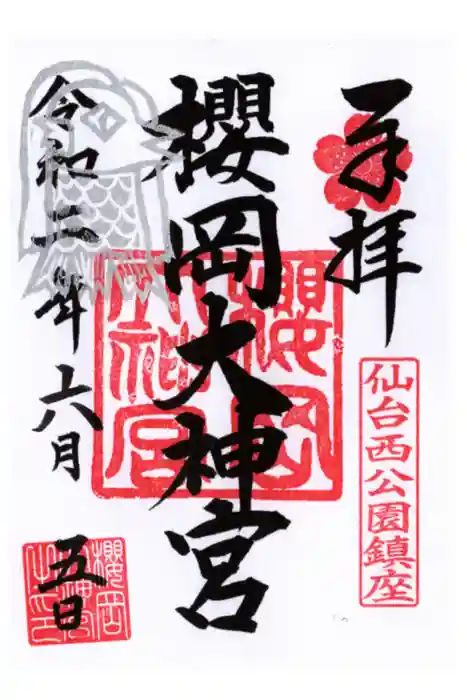 奉拝
仙台西公園鎮座
櫻岡大神宮
櫻岡
大神宮
令和二年六月五日